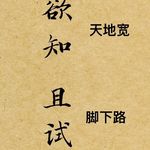 欲知天地宽
且试脚下路